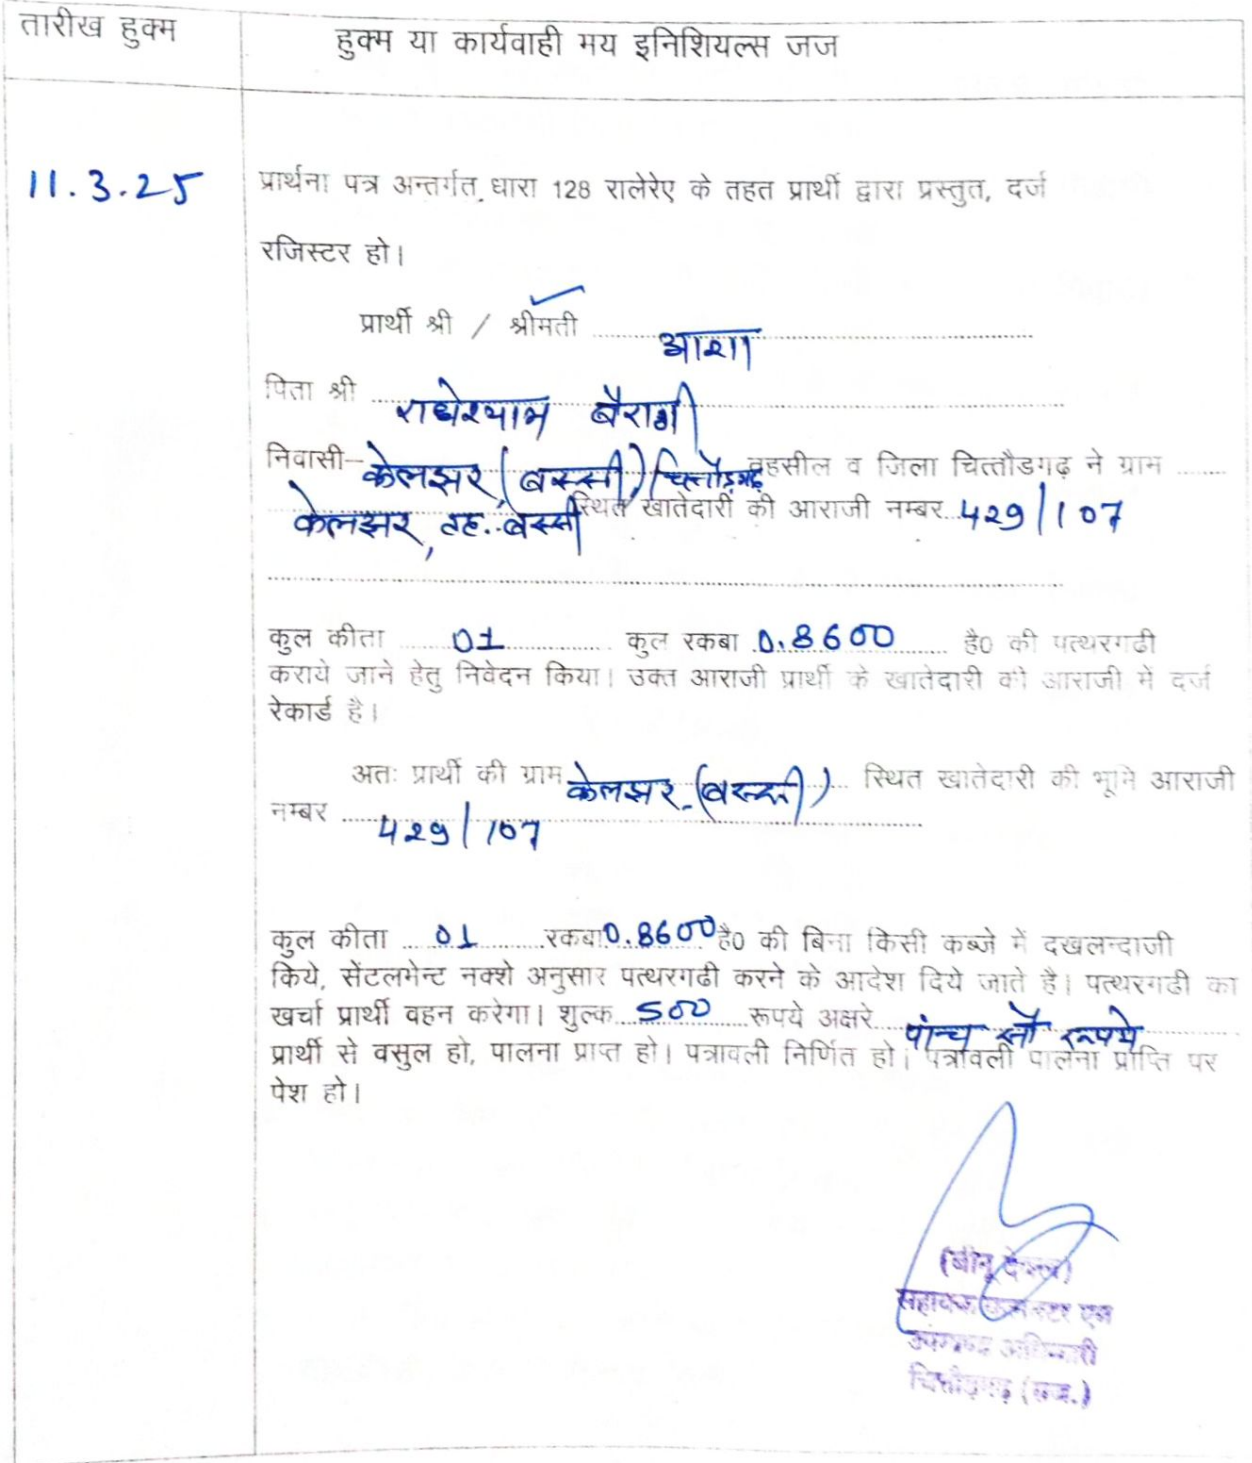 तारीख हुक्म
हुक्म या कार्यवाही मय इनिशियल्स जज
11.3.25
प्रार्थना पत्र अन्तर्गत धारा 128 रालेरेए के तहत प्रार्थी द्वारा प्रस्तुत, दर्ज
रजिस्टर हो।
प्रार्थी श्री / श्रीमती आशा
पिता श्री राधेश्याम बैरागी
निवासी– केलझर, (बस्सी) चित्तौड़गढ़ तहसील व जिला चित्तौडगढ़ ने ग्राम
केलझर, तह. बस्सी स्थित खातेदारी की आराजी नम्बर 429/107
कुल कीता 01 कुल रकबा 0.8600 है0 की पत्थरगढी
कराये जाने हेतु निवेदन किया। उक्त आराजी प्रार्थी के खातेदारी की आराजी में दर्ज
रेकार्ड है।
अतः प्रार्थी की ग्राम केलझर (बस्सी) स्थित खातेदारी की भूमि आराजी
नम्बर 429/107
कुल कीता 01 रकबा 0.8600 है0 की बिना किसी कब्जे में दखलन्दाजी
किये, सेंटलमेन्ट नक्शे अनुसार पत्थरगढी करने के आदेश दिये जाते है। पत्थरगढी का
खर्चा प्रार्थी वहन करेगा। शुल्क 500 रूपये अक्षरे पांच सौ रूपये
प्रार्थी से वसुल हो, पालना प्राप्त हो। पत्रावली निर्णित हो। पत्रावली पालना प्राप्ति पर
पेश हो।
(बीनू देवल)
सहायक कलक्टर एवं
उपखण्ड अधिकारी
चित्तौड़गढ़ (राज.)